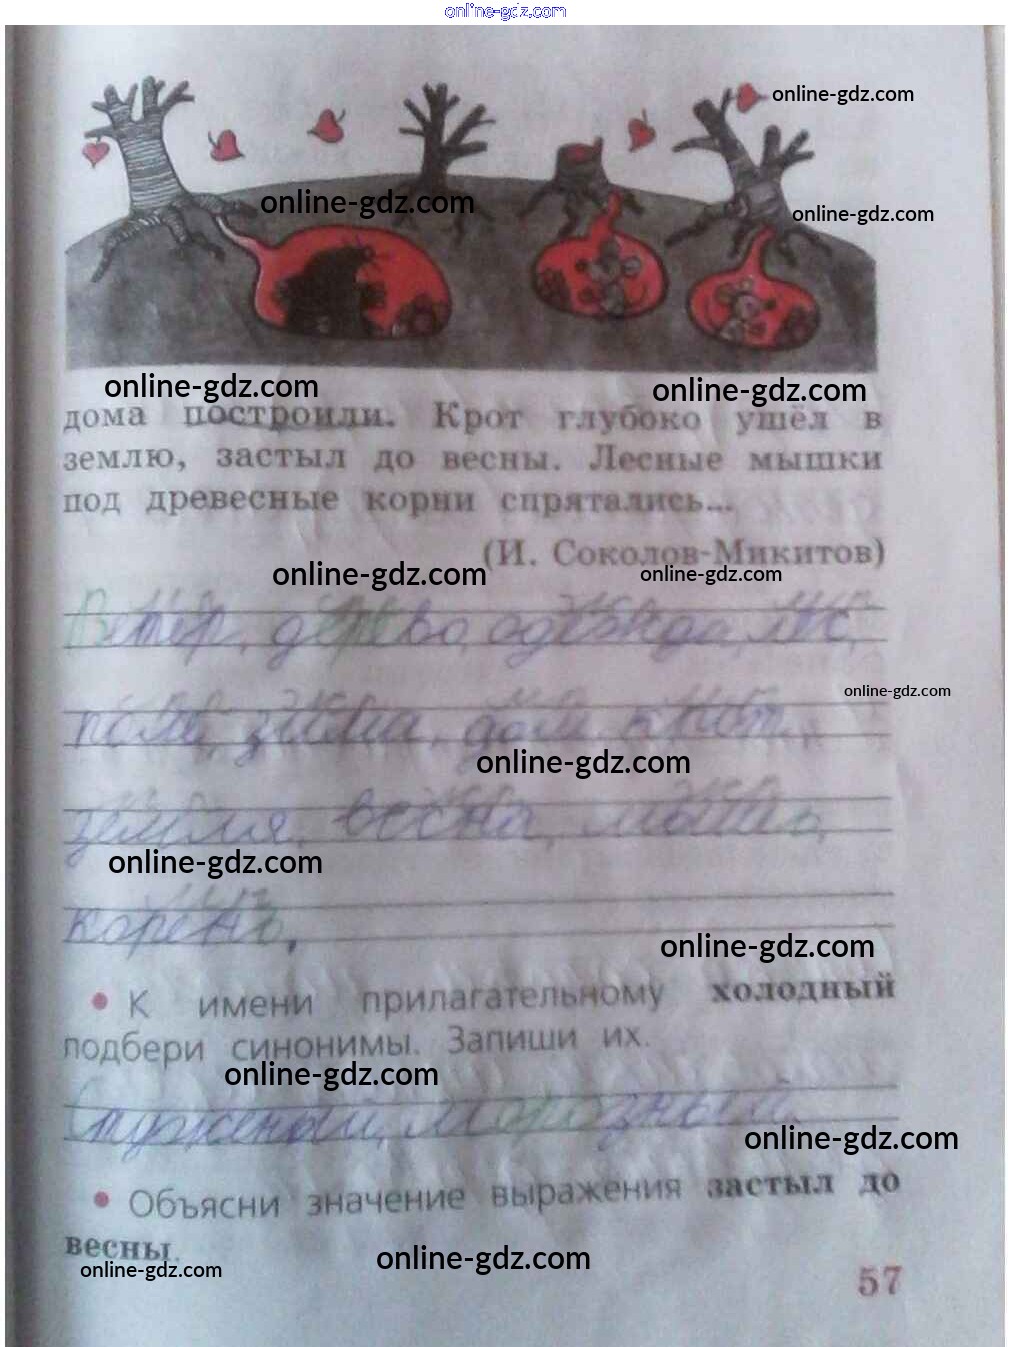 online-gdz.com
online-gdz.com
online-gdz.com
online-gdz.com
online-gdz.com online-gdz.com
дома построили. Крот глубоко ушёл в
землю, застыл до весны. Лесные мышки
под древесные корни спрятались...
(И. Соколов-Микитов)
online-gdz.com online-gdz.com
Ветер, дерево, одежда, лес,
online-gdz.com
поле, зима, дом, крот,
online-gdz.com
земля, весна, мышь,
online-gdz.com
корень.
online-gdz.com
• К имени прилагательному холодный
подбери синонимы. Запиши их.
online-gdz.com
Стуженый, морозный.
online-gdz.com
• Объясни значение выражения застыл до
весны.
online-gdz.com online-gdz.com
57